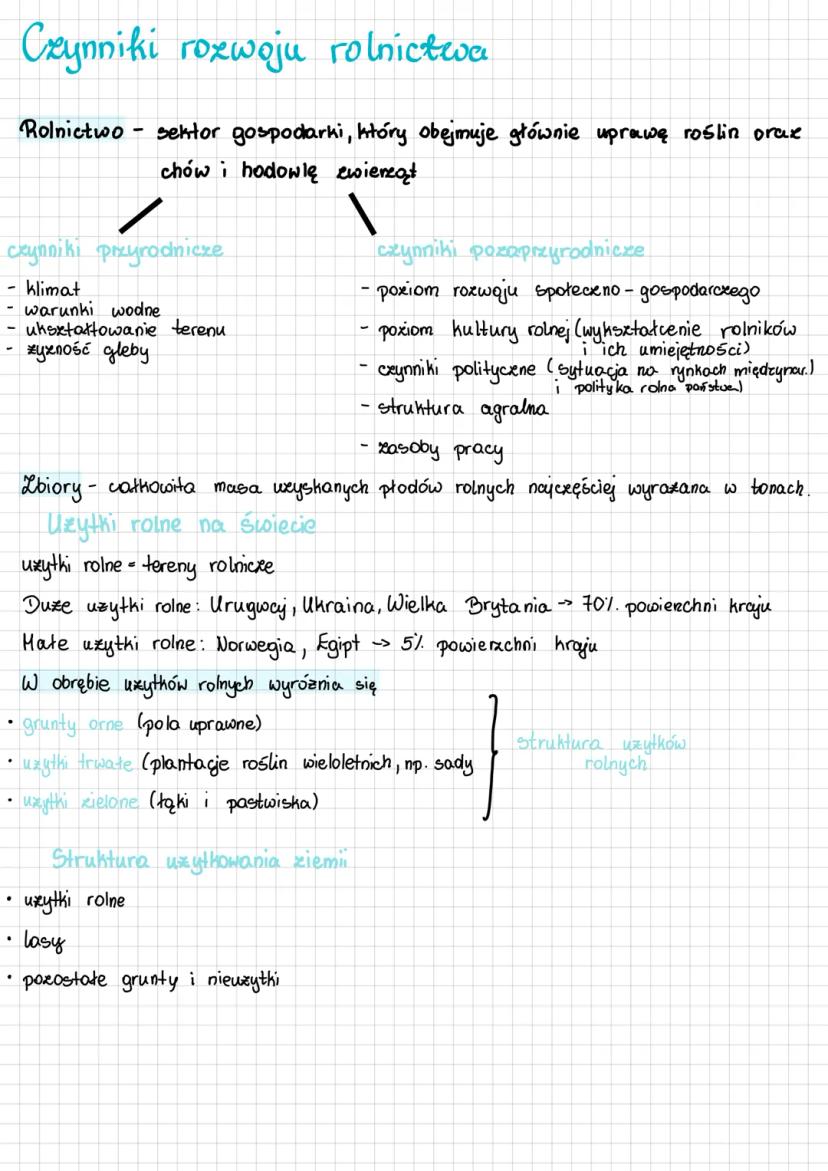 Czynniki rozwoju rolnictwa
Rolnictwo - sektor gospodarki, który obejmuje głównie uprawę roślin oraz
chów i hodowlę zwierząt
czynniki przyrodnicze
- klimat
- warunki wodne
- ukształtowanie terenu
- żyzność gleby
czynniki pozaprzyrodnicze
- poziom rozwoju społeczno - gospodarczego
- poziom kultury rolnej (wykształcenie rolników
i ich umiejętności)
- czynniki polityczne (sytuacja na rynkach międzynar.)
i polityka rolna państwa)
- struktura agralna
- zasoby pracy
Zbiory - całkowita masa uzyskanych płodów rolnych najczęściej wyrażana w tonach.
Użytki rolne na świecie
użytki rolne = tereny rolnicze
Duże użytki rolne: Urugwaj, Ukraina, Wielka Brytania → 70% powierzchni kraju
Małe użytki rolne: Norwegia, Egipt → 5% powierzchni kraju
W obrębie użytków rolnych wyróżnia się
• grunty orne (pola uprawne)
• użytki trwałe (plantacje roślin wieloletnich, np. sady
• użytki zielone (łąki i pastwiska)
struktura użytków
rolnych
Struktura użytkowania ziemii
• użytki rolne
• lasy
• pozostałe grunty i nieużytki